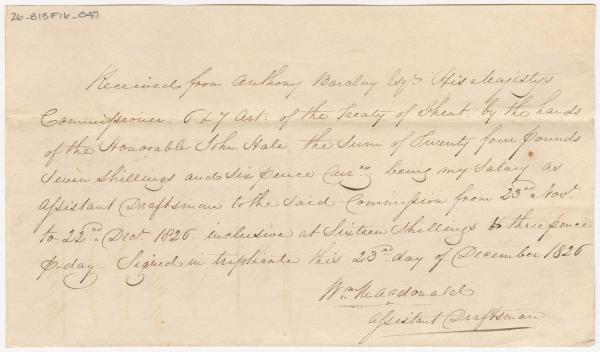 26-B13F16-047
Received from Anthony Barclay Esqr. His Majestys
Commissioner 6 & 7 Art: of the Treaty of Ghent by the hands
of the Honorable John Hale, the sum of Twenty four pounds
Seven Shillings and six pence Curcy. being my Salary as
Assistant Draftsman to the said Commission from 23rd Novr.
to 22nd Decr. 1826. inclusive at Sixteen Shillings & three pence
p day - Signed in triplicate this 23rd day of December 1826
Wm. Macdonald
Assistant Draftsman